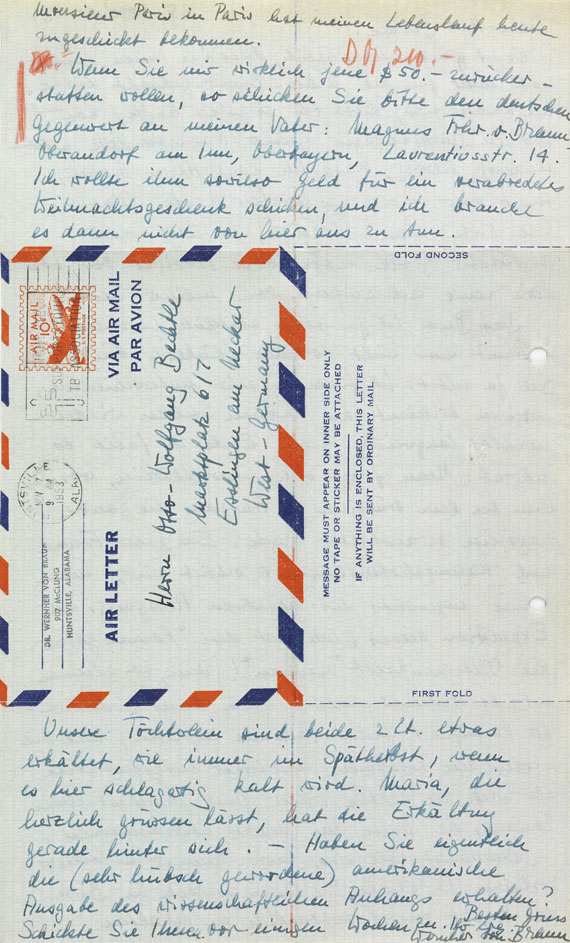 Monsieur Paris in Paris hat meinen Lebenslauf heute
zugeschickt bekommen.
DM 210.-
Wenn Sie mir wirklich jene $50.- zurücker-
statten wollen, so schicken Sie bitte den deutschen
Gegenwert an meinen Vater: Magnus Frhr. v. Braun
Oberaudorf am Inn, Oberbayern, Laurentiusstr. 14.
Ich wollte ihm sowieso Geld für ein verabredetes
Weihnachtsgeschenk schicken, und ich brauche
es dann nicht von hier aus zu tun.
SECOND FOLD
AIR MAIL
10¢
VIA AIR MAIL
PAR AVION
Herrn Otto-Wolfgang Bechtle
Marktplatz 6/7
Esslingen am Neckar
West-Germany
NOV 7
9 AM
1953
ALA.
DR. WERNHER VON BRAUN
907 McCLUNG
HUNTSVILLE, ALABAMA
AIR LETTER
MESSAGE MUST APPEAR ON INNER SIDE ONLY
NO TAPE OR STICKER MAY BE ATTACHED
IF ANYTHING IS ENCLOSED, THIS LETTER
WILL BE SENT BY ORDINARY MAIL
FIRST FOLD
Unsere Töchterlein sind beide z Zt. etwas
erkältet, wie immer im Spätherbst, wenn
es hier schlagartig kalt wird. Maria, die
herzlich grüssen lässt, hat die Erkältung
gerade hinter sich. – Haben Sie eigentlich
die (sehr hübsch gewordene) amerikanische
Ausgabe des wissenschaftlichen Anhangs erhalten?
Schickte sie Ihnen vor einigen Wochen zu.
Besten Gruss
Ihr
Wernher von Braun